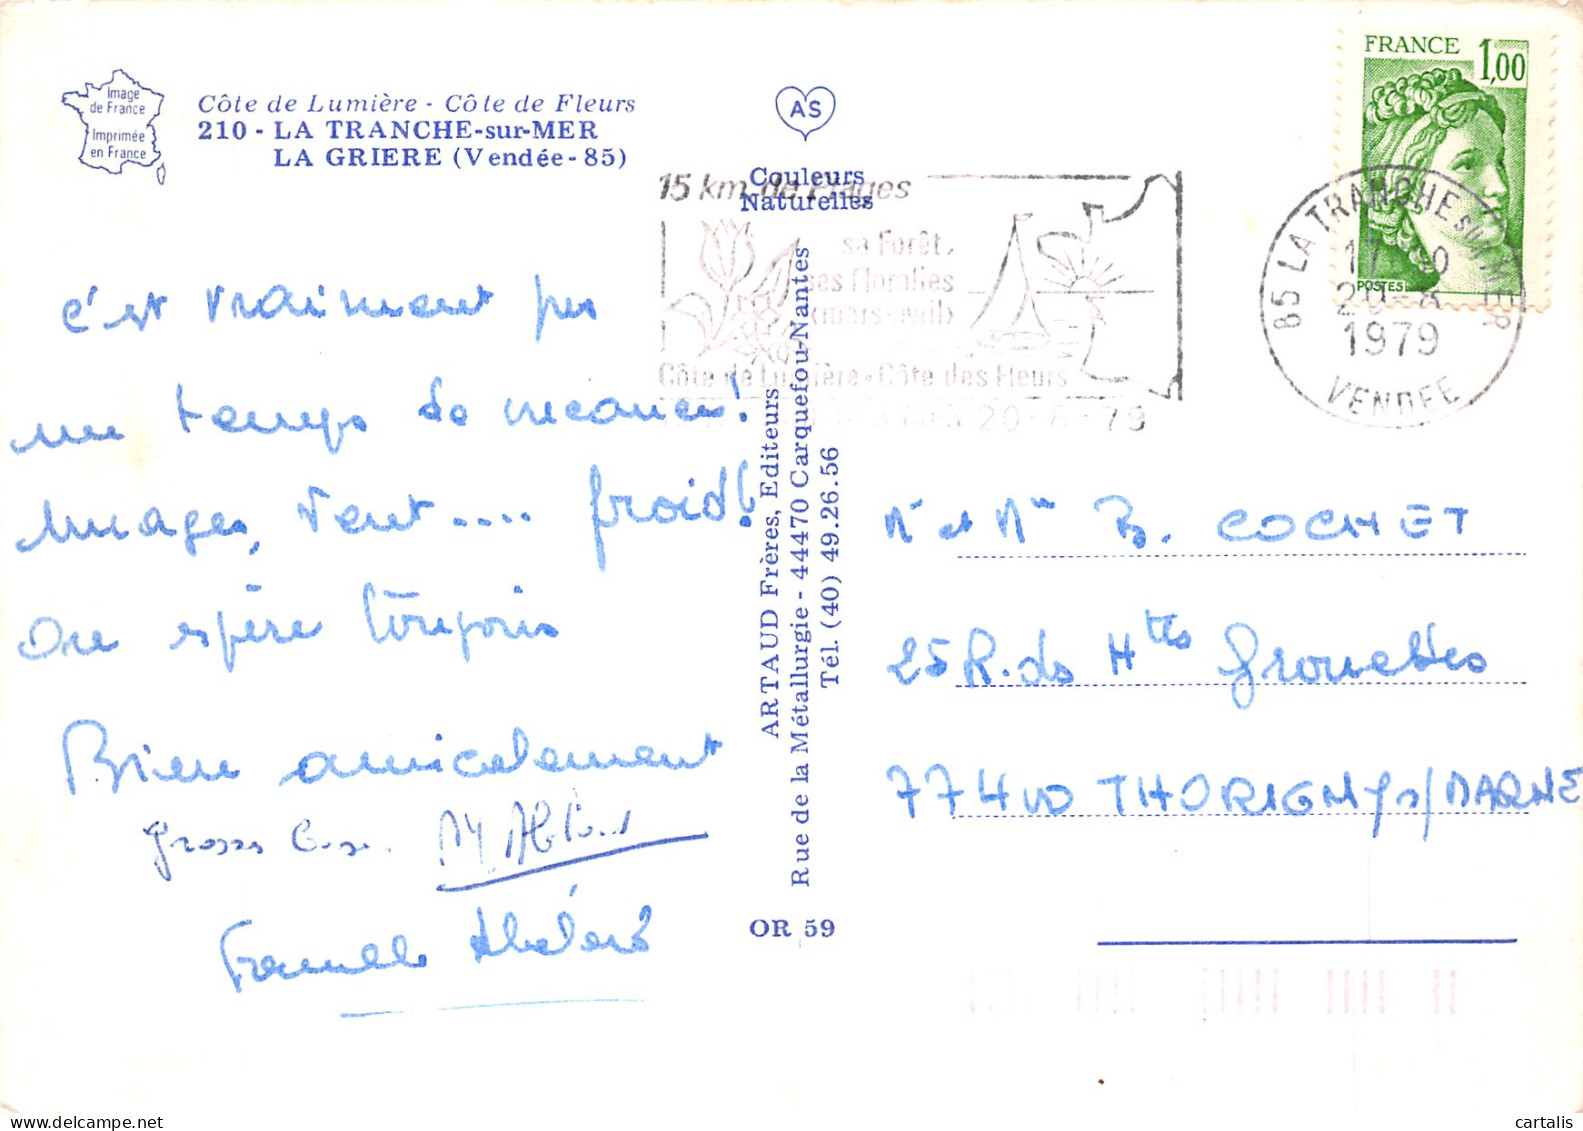 Image
de France
Imprimée
en France
Côte de Lumière - Côte de Fleurs
210 - LA TRANCHE-sur-MER
LA GRIERE (Vendée - 85)
AS
Couleurs
Naturelles
15 km de Plages
sa Forêt,
ses Floralies
(mars-avril)
Côte de Lumière - Côte des Fleurs
20-8-79
FRANCE 1,00
POSTES
85 LA TRANCHE sur MER
17 30
20-8
1979
VENDEE
c'est vraiment pas
un temps de vacances!
nuages, Vent.... froid!
On espère toujours
Bien amicalement
grosses bises.
Famille
ARTAUD Frères, Editeurs
Rue de la Métallurgie - 44470 Carquefou-Nantes
Tél. (40) 49.26.56
OR 59
Mr et Mme B. COCHET
25 R. des Htes Grouettes
77400 THORIGNY s/MARNE
cartalis